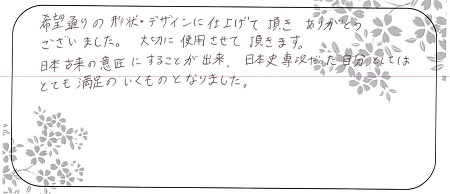 希望通りの形状・デザインに仕上げて頂きありがとう
ございました。大切に使用させて頂きます。
日本古来の意匠にすることが出来、日本史専攻だった自分としては
とても満足のいくものとなりました。